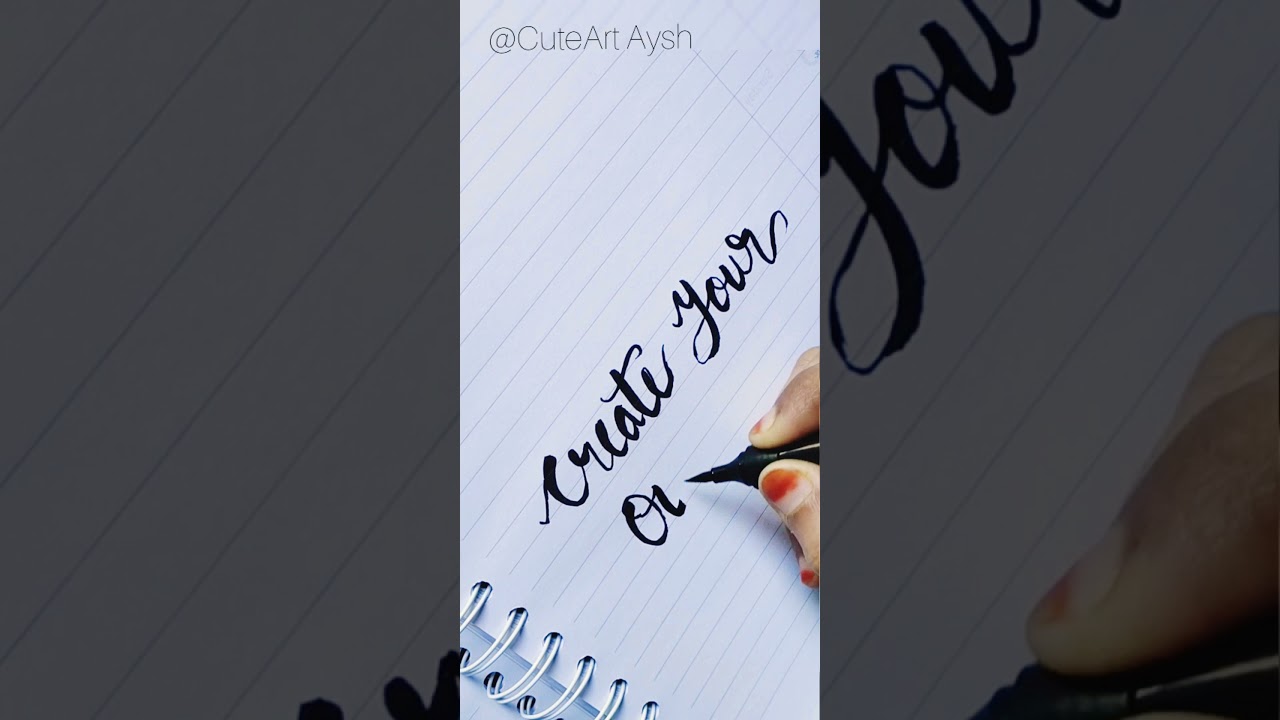 @CuteArt Aysh
Create your
Ou